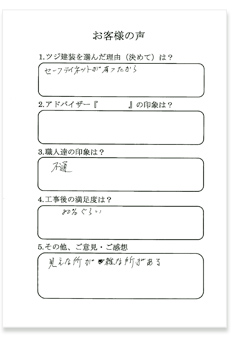 お客様の声
1.ツジ建装を選んだ理由（決めて）は？
セーフティネットが有ったから
2.アドバイザー『　　　』の印象は？
3.職人達の印象は？
不通
4.工事後の満足度は？
80%ぐらい
5.その他、ご意見・ご感想
見えな所が雑な所がある